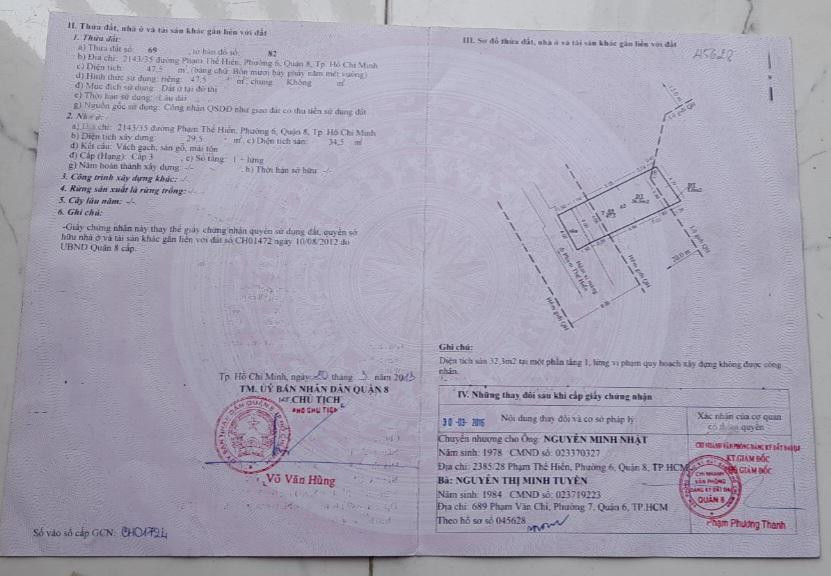 II. Thửa đất, nhà ở và tài sản khác gắn liền với đất
1. Thửa đất:
a) Thửa đất số: 69 , tờ bản đồ số: 82
b) Địa chỉ: 2143/35 đường Phạm Thế Hiển, Phường 6, Quận 8, Tp. Hồ Chí Minh
c) Diện tích: 47,5 m², (bằng chữ: Bốn mươi bảy phẩy năm mét vuông)
d) Hình thức sử dụng: riêng: 47,5 m², chung: Không m²
đ) Mục đích sử dụng: Đất ở tại đô thị
e) Thời hạn sử dụng: Lâu dài
g) Nguồn gốc sử dụng: Công nhận QSDĐ như giao đất có thu tiền sử dụng đất
2. Nhà ở:
a) Địa chỉ: 2143/35 đường Phạm Thế Hiển, Phường 6, Quận 8, Tp. Hồ Chí Minh
b) Diện tích xây dựng: 29,5 m², c) Diện tích sàn: 34,5 m²
d) Kết cấu: Vách gạch, sàn gỗ, mái tôn
đ) Cấp (Hạng): Cấp 3 , e) Số tầng: 1 + lửng
g) Năm hoàn thành xây dựng: -/- , h) Thời hạn sở hữu: -/-
3. Công trình xây dựng khác: -/-
4. Rừng sản xuất là rừng trồng: -/-
5. Cây lâu năm: -/-
6. Ghi chú:
-Giấy chứng nhận này thay thế giấy chứng nhận quyền sử dụng đất, quyền sở
hữu nhà ở và tài sản khác gắn liền với đất số CH01472 ngày 10/08/2012 do
UBND Quận 8 cấp.
Tp. Hồ Chí Minh, ngày 20 tháng 3 năm 2013
TM. ỦY BAN NHÂN DÂN QUẬN 8
KT. CHỦ TỊCH
PHÓ CHỦ TỊCH
Võ Văn Hùng
Số vào sổ cấp GCN: CH01724
III. Sơ đồ thửa đất, nhà ở và tài sản khác gắn liền với đất
45628
Lộ giới QH
Hẻm giới QH
Hẻm xi măng
đ. Phạm Thế Hiển
Hẻm giới QH
Lộ giới QH
20.0m
Ghi chú:
Diện tích sàn 32,3m2 tại một phần tầng 1, lửng vi phạm quy hoạch xây dựng không được công
nhận.
IV. Những thay đổi sau khi cấp giấy chứng nhận
30-03-2016 Nội dung thay đổi và cơ sở pháp lý
Xác nhận của cơ quan
có thẩm quyền
Chuyển nhượng cho Ông: NGUYỄN MINH NHẬT
Năm sinh: 1978 CMND số: 023370327
Địa chỉ: 2385/28 Phạm Thế Hiển, Phường 6, Quận 8, TP.HCM
Bà: NGUYỄN THỊ MINH TUYỀN
Năm sinh: 1984 CMND số: 023719223
Địa chỉ: 689 Phạm Văn Chí, Phường 7, Quận 6, TP.HCM
Theo hồ sơ số 045628
CHI NHÁNH VĂN PHÒNG ĐĂNG KÝ ĐẤT ĐAI Q.8
KT.GIÁM ĐỐC
PHÓ GIÁM ĐỐC
CHI NHÁNH
VĂN PHÒNG
ĐĂNG KÝ ĐẤT ĐAI
QUẬN 8
Phạm Phương Thanh